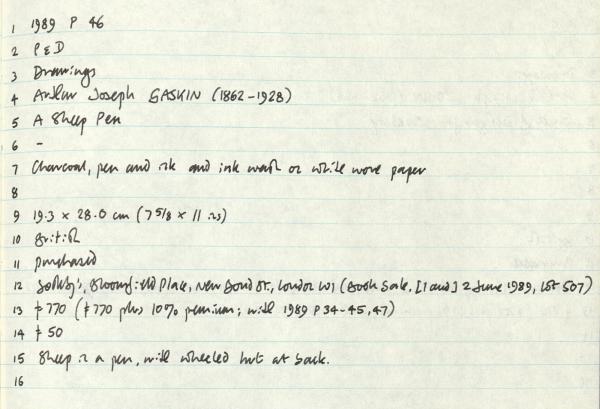 1 1989 P 46
2 P&D
3 Drawings
4 Arthur Joseph GASKIN (1862-1928)
5 A Sheep Pen
6 -
7 Charcoal, pen and ink and ink wash on white wove paper
8
9 19.3 x 28.0 cm (7 5/8 x 11 ins)
10 British
11 purchased
12 Sotheby's, Bloomfield Place, New Bond St., London W1 (Book Sale, [1 and] 2 June 1989, Lot 507)
13 £770 (£770 plus 10% premium; with 1989 P 34-45, 47)
14 £50
15 Sheep in a pen, with wheeled hut at back.
16